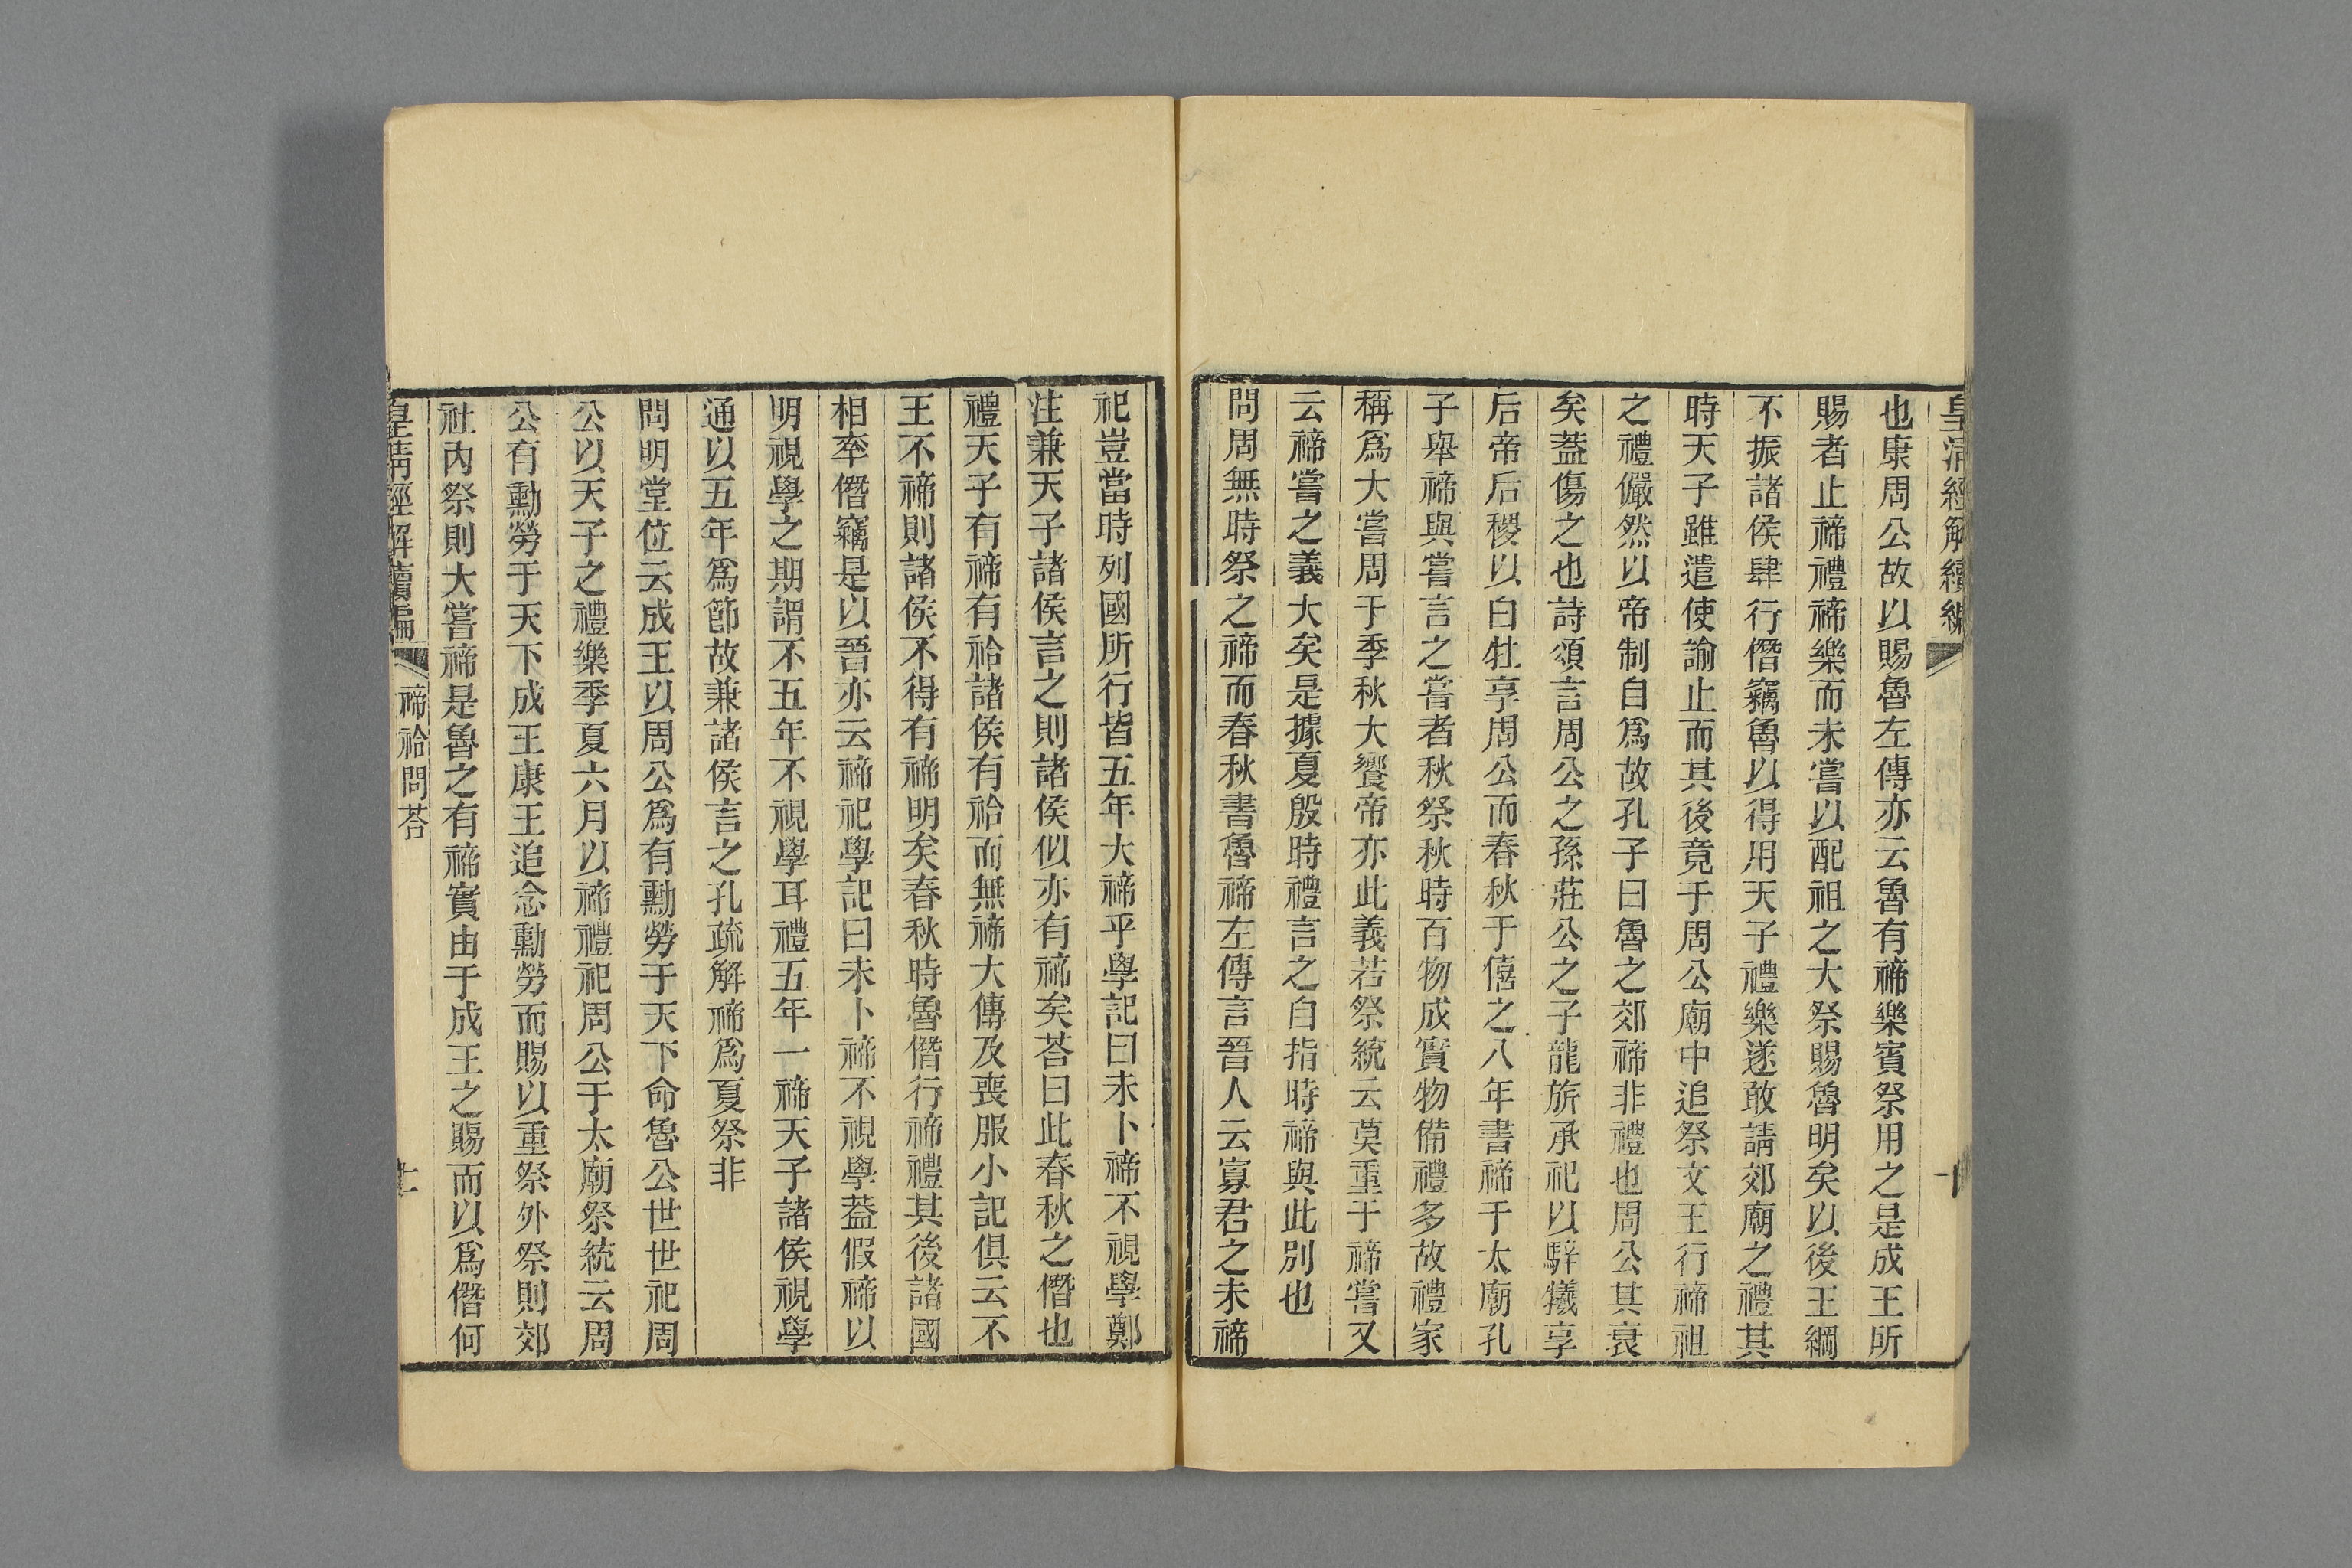 皇清經解續編
也康周公故以賜魯左傳亦云魯有禘樂賓祭用之是成王所
賜者止禘禮禘樂而未嘗以配祖之大祭賜魯明矣以後王綱
不振諸侯肆行僭竊魯以得用天子禮樂遂敢請郊廟之禮其
時天子雖遣使諭止而其後竟于周公廟中追祭文王行禘祖
之禮儼然以帝制自爲故孔子曰魯之郊禘非禮也周公其衰
矣葢傷之也詩頌言周公之孫莊公之子龍旂承祀以騂犧享
后帝后稷以白牡享周公而春秋于僖之八年書禘于太廟孔
子舉禘與嘗言之嘗者秋祭秋時百物成實物備禮多故禮家
稱爲大嘗周于季秋大饗帝亦此義若祭統云莫重于禘嘗又
云禘嘗之義大矣是據夏殷時禮言之自指時禘與此別也
問周無時祭之禘而春秋書魯禘左傳言晉人云寡君之未禘
祀豈當時列國所行皆五年大禘乎學記曰未卜禘不視學鄭
注兼天子諸侯言之則諸侯似亦有禘矣荅曰此春秋之僭也
禮天子有禘有祫諸侯有祫而無禘大傳及喪服小記俱云不
王不禘則諸侯不得有禘明矣春秋時魯僭行禘禮其後諸國
相率僭竊是以晉亦云禘祀學記曰未卜禘不視學葢假禘以
明視學之期謂不五年不視學耳禮五年一禘天子諸侯視學
通以五年爲節故兼諸侯言之孔疏解禘爲夏祭非
問明堂位云成王以周公爲有勳勞于天下命魯公世世祀周
公以天子之禮樂季夏六月以禘禮祀周公于太廟祭統云周
公有勳勞于天下成王康王追念勳勞而賜以重祭外祭則郊
社內祭則大嘗禘是魯之有禘實由于成王之賜而以爲僭何
皇清經解續編 禘祫問荅